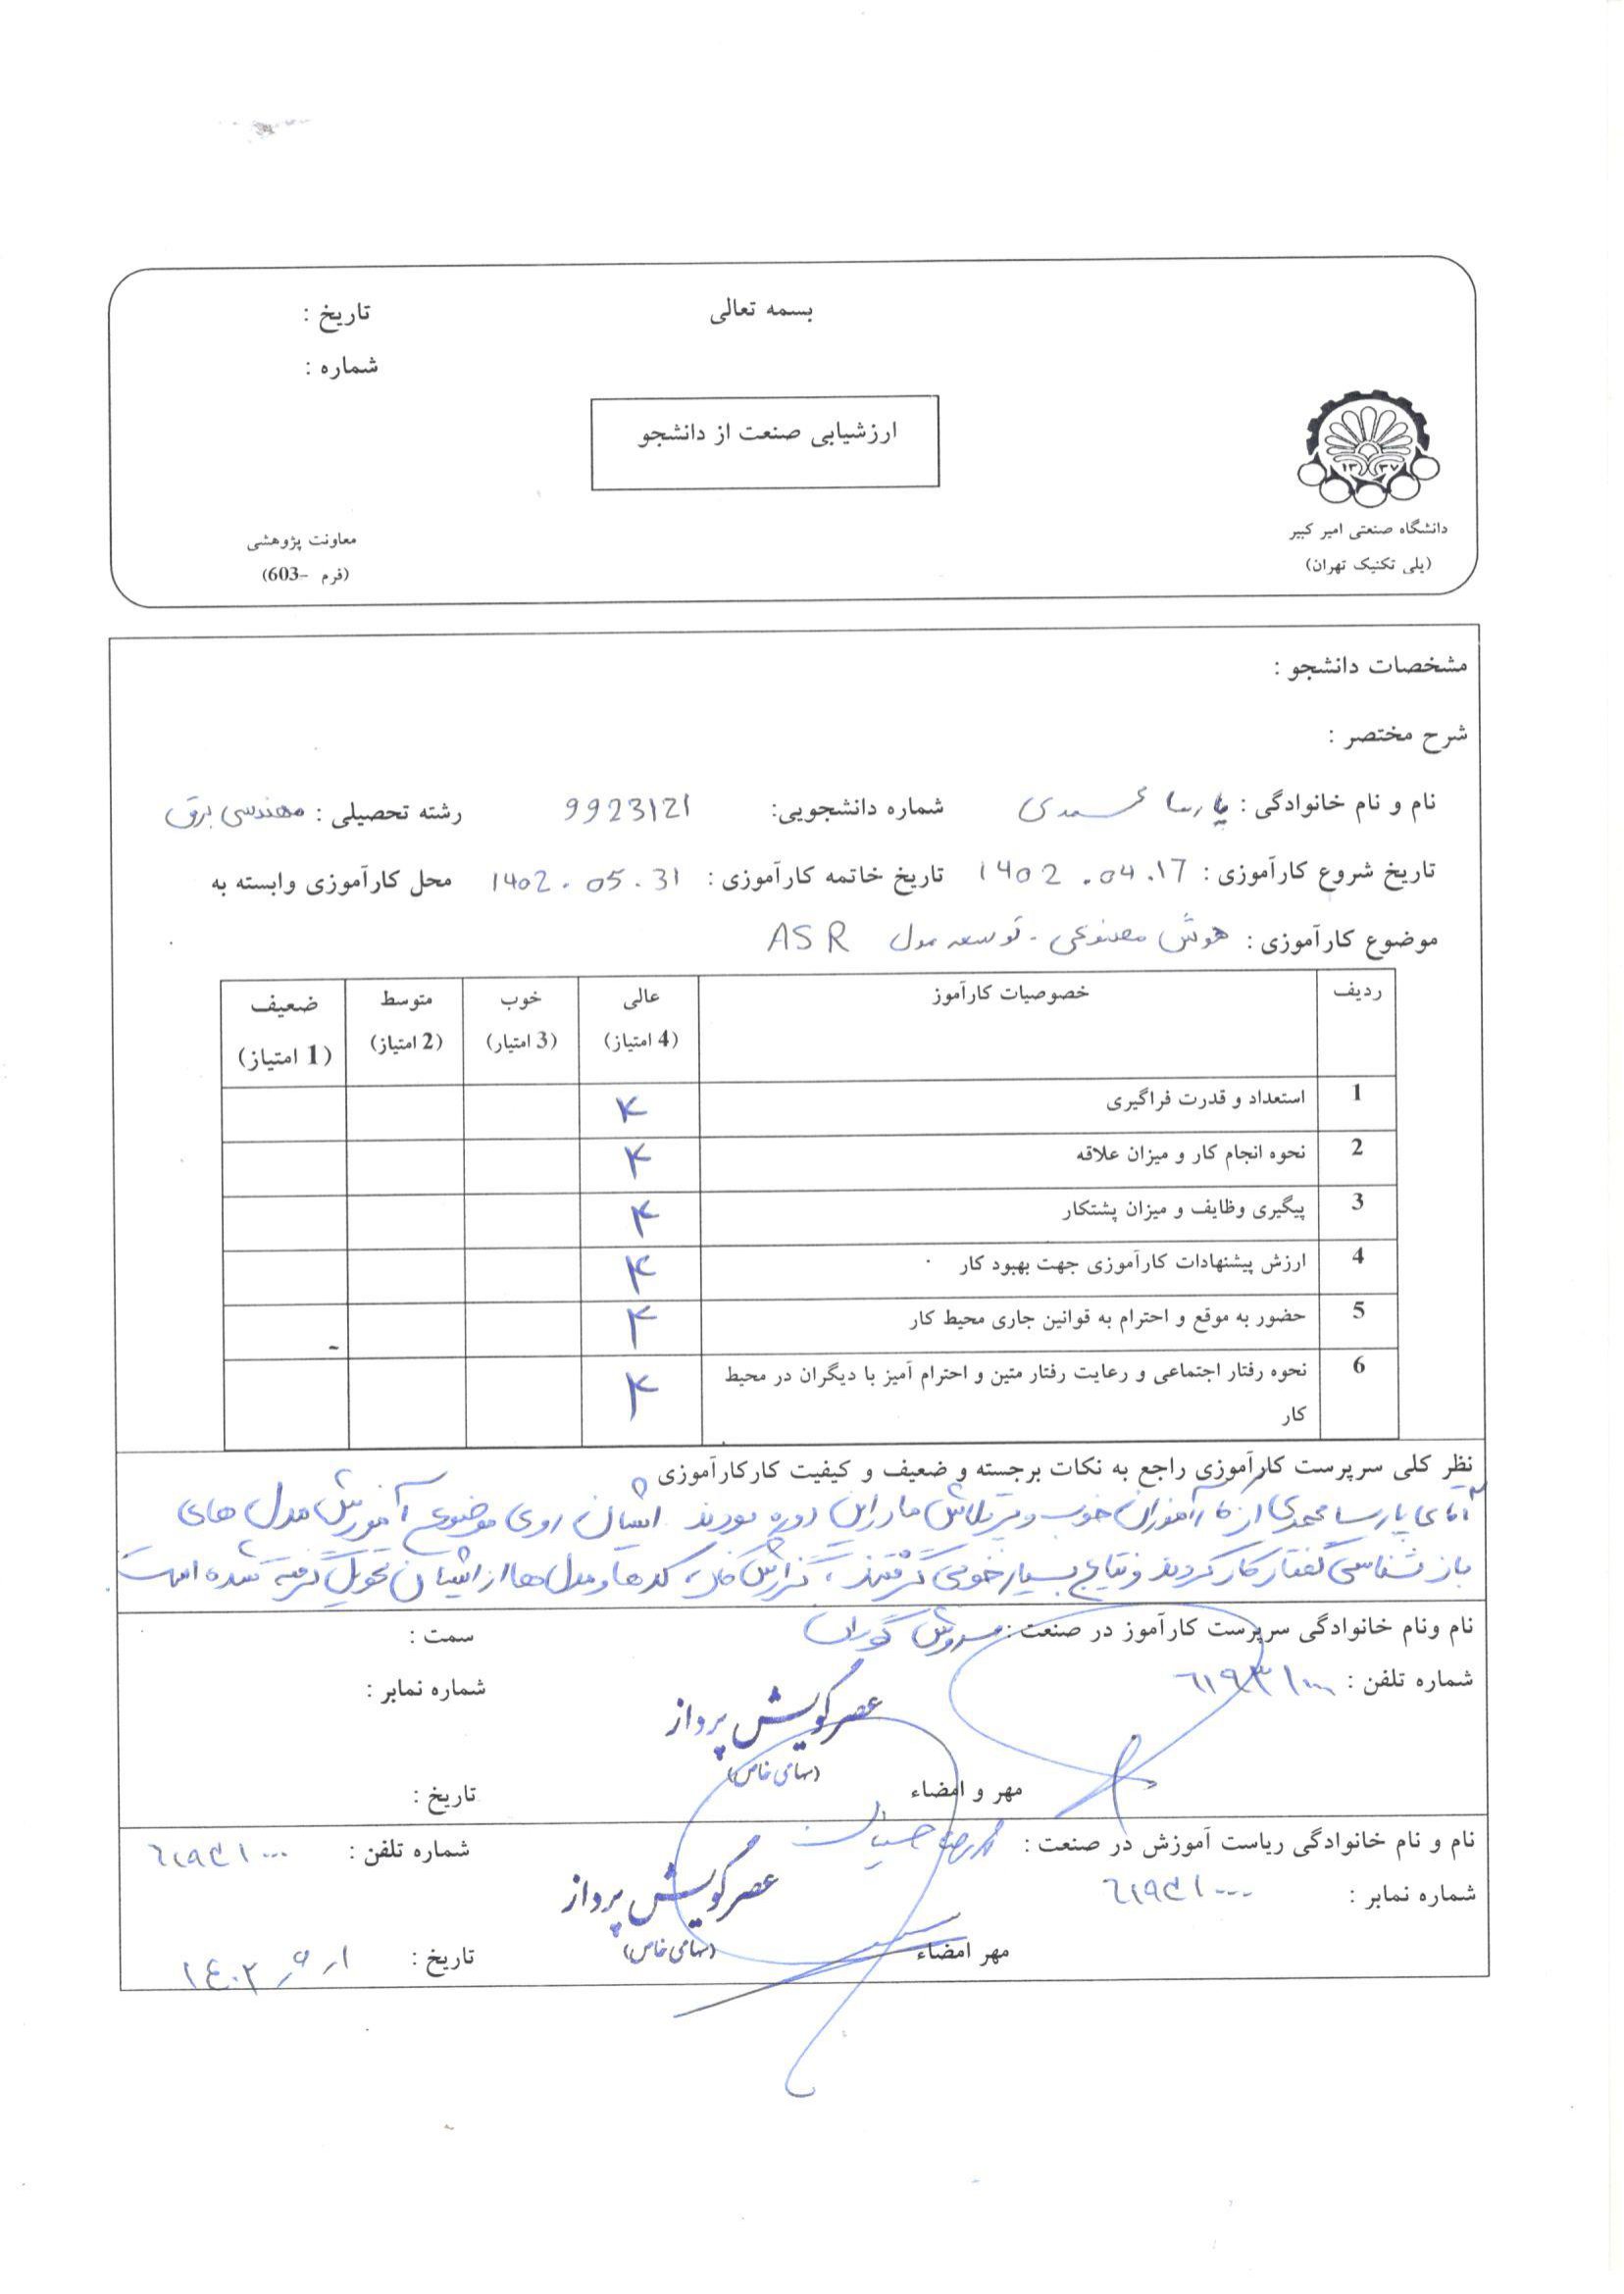 بسمه تعالی
تاریخ :
شماره :
ارزشیابی صنعت از دانشجو
۱۳۳۷
دانشگاه صنعتی امیر کبیر
(پلی تکنیک تهران)
معاونت پژوهشی
(فرم -603)
مشخصات دانشجو :
شرح مختصر :
نام و نام خانوادگی : پارسا محمدی شماره دانشجویی: 9923121 رشته تحصیلی : مهندسی برق
تاریخ شروع کارآموزی : 1402.04.17 تاریخ خاتمه کارآموزی : 1402.05.31 محل کارآموزی وابسته به
موضوع کارآموزی : هوش مصنوعی - توسعه مدل ASR
ردیف خصوصیات کارآموز عالی (4 امتیاز) خوب (3 امتیاز) متوسط (2 امتیاز) ضعیف (1 امتیاز)
1 استعداد و قدرت فراگیری ۴
2 نحوه انجام کار و میزان علاقه ۴
3 پیگیری وظایف و میزان پشتکار ۴
4 ارزش پیشنهادات کارآموزی جهت بهبود کار ۴
5 حضور به موقع و احترام به قوانین جاری محیط کار ۴
6 نحوه رفتار اجتماعی و رعایت رفتار متین و احترام آمیز با دیگران در محیط ۴
کار
نظر کلی سرپرست کارآموزی راجع به نکات برجسته و ضعیف و کیفیت کارکارآموزی
آقای پارسا محمدی از کارآموزان خوب و پرتلاش ما در این دوره بودند ایشان روی موضوع آموزش مدل های
بازشناسی گفتار کار کردند و نتایج بسیار خوبی گرفتند، گزارش کار، کدها و مدل ها از ایشان تحویل گرفته شده است.
نام ونام خانوادگی سرپرست کارآموز در صنعت : سروش گوران سمت :
شماره تلفن : ۶۱۹۳۱۰۰۰ شماره نمابر :
عصر گویش پرداز
(سهامی خاص)
مهر و امضاء تاریخ :
نام و نام خانوادگی ریاست آموزش در صنعت : شماره تلفن : ۶۱۹۳۱۰۰۰
شماره نمابر : ۶۱۹۳۱۰۰۰
عصر گویش پرداز
(سهامی خاص)
مهر امضاء تاریخ :